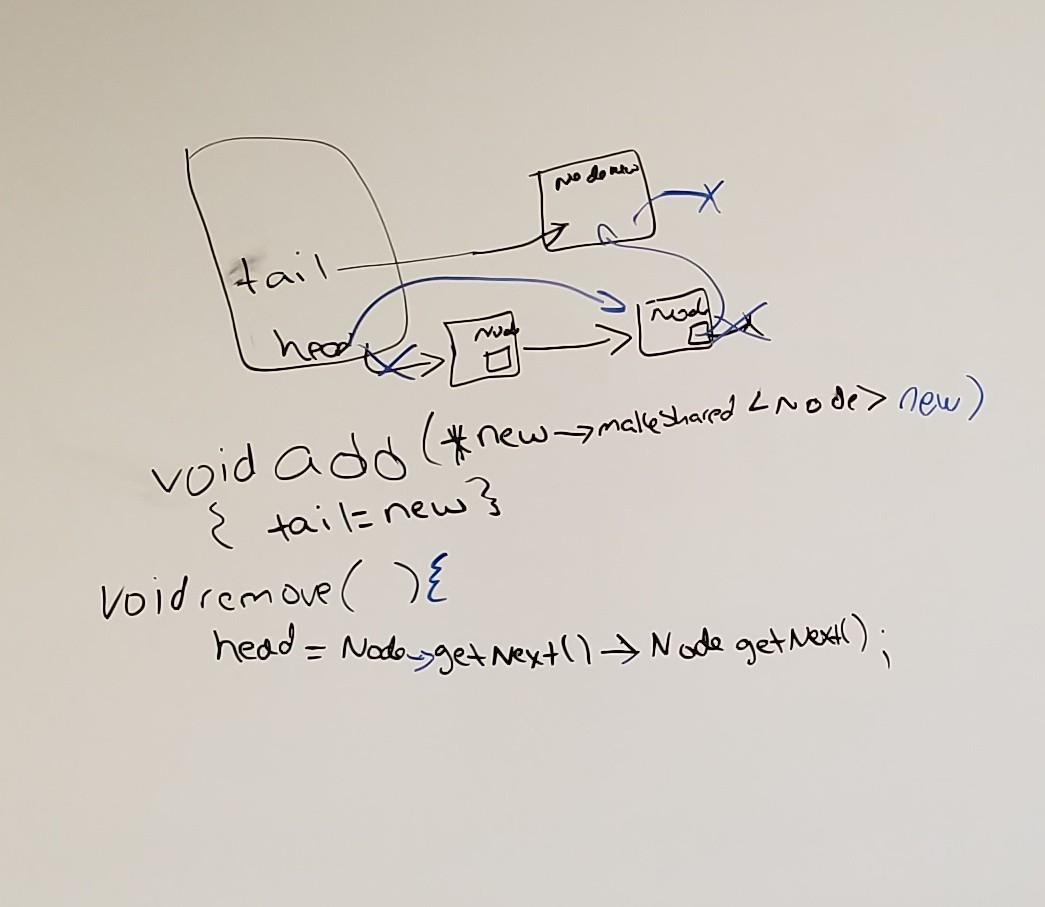 Node new
tail
head
Node
Node
void add (*new→makeshared <Node> new)
{ tail=new}
void remove( ){
head = Node→getNext()→Node getNext();